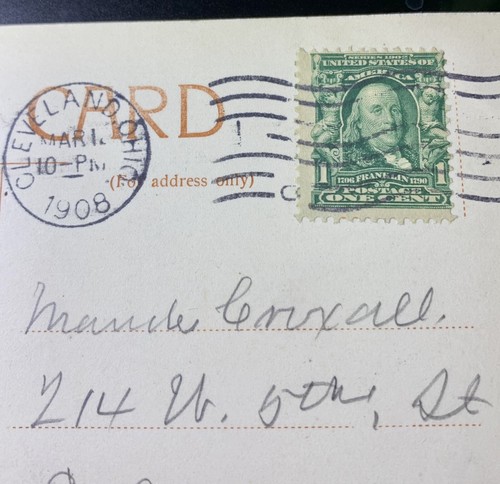 SERIES 1902
UNITED STATES OF
AMERICA
CARD
CLEVELAND, OHIO
MAR
10-PM
1908
(For address only)
1 1
1706 FRANKLIN 1790
POSTAGE
ONE CENT
Maude Croxall.
714 W. 5th, St